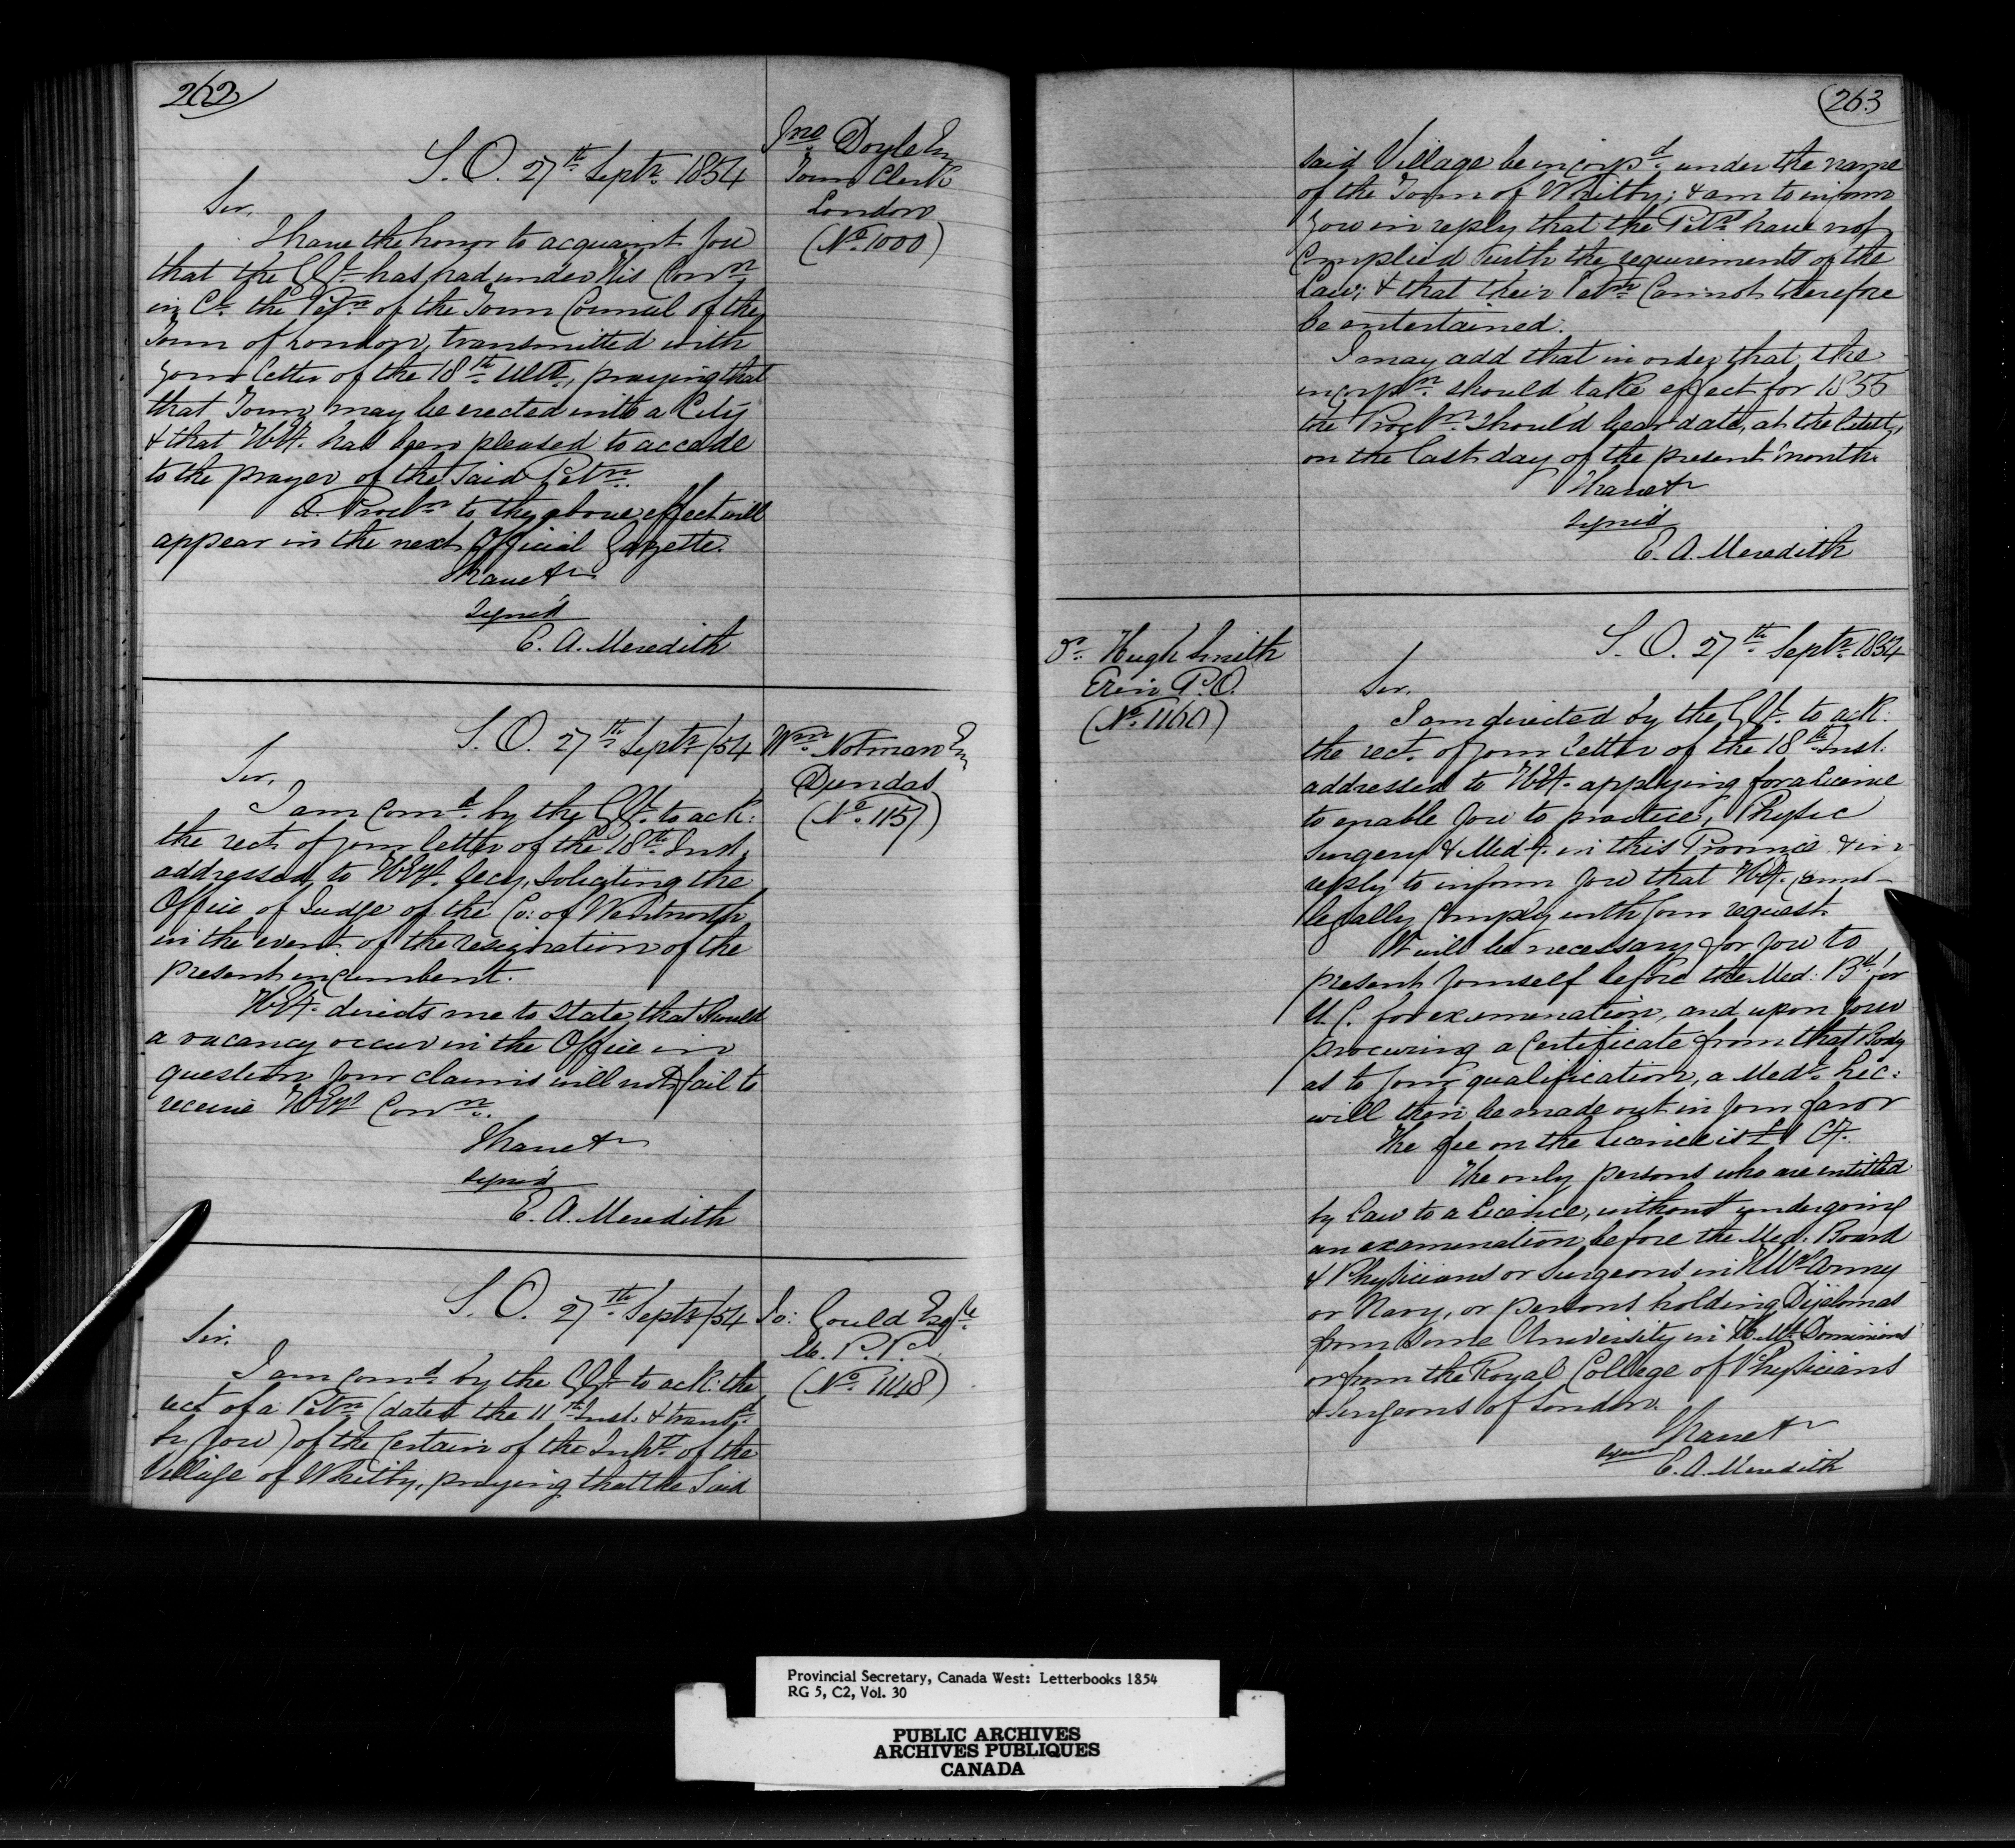 262
S. O. 27th Septr. 1854
Jno Doyle Esq
Town Clerk
London
(No. 1000)
Sir,
I have the honor to acquaint you
that the GGl. has had under His Conn.
in Cl. the Petn. of the Town Council of the
Town of London, transmitted with
your letter of the 18th Ulto., praying that
that Town may be erected into a City
& that HE. has been pleased to accede
to the prayer of the said Petn.
A Procln. to the above effect will
appear in the next Official Gazette.
I have &c
Signed
E. A. Meredith
S. O. 27th Septr /54
Wm. Notman Esq
Dundas
(No. 1157)
Sir,
I am comd. by the GGl. to ack:
the rect. of your letter of the 18th Inst.
addressed to HEy's. Secy, soliciting the
Office of Judge of the Co: of Wentworth
in the event of the resignation of the
present incumbent.
HEy. directs me to state that should
a vacancy occur in the Office in
question your claims will not fail to
receive HEy's Conn.
I have &c
Signed
E. A. Meredith
S. O. 27th Septr /54
Jo: Gould Esqre.
M. P. P.
(No. 1148)
Sir.
I am comd. by the GGl. to ack: the
rect of a Petn (dated the 11th Inst. & transd.
by you) of the Certain of the Inhts. of the
Village of Whitby, praying that the Said
263
said Village be incorpd. under the name
of the Town of Whitby; & am to inform
you in reply that the Petrs have not
complied with the requirements of the
Law; & that their Petn. cannot therefore
be entertained.
I may add that in order that the
incorpn. should take effect for 1855
the Procln. should bear date, at the latest,
on the last day of the present month.
I have &c
Signed
E. A. Meredith
S. O. 27th Septr. 1854
Dr. Hugh Smith
Erin P.O.
(No. 1160)
Sir.
I am directed by the GGl. to ack:
the rect. of your letter of the 18th Inst.
addressed to HEy. applying for a licence
to enable you to practice, Physic
Surgery & Mid-y. in this Province & in
reply to inform you that HEy. cannot
legally comply with your request.
It will be necessary for you to
present yourself before the Med: Bd. for
U. C. for examination, and upon your
procuring a Certificate from that Body
as to your qualification, a Medl. Lic:
will then be made out in your favor
The fee on the licence is £1 Cy.
The only persons who are entitled
by law to a licence, without undergoing
an examination before the Med. Board
& Physicians or Surgeons in H.M's. Army
or Navy, or persons holding Diplomas
from some University in H. M's. Dominions
or from the Royal College of Physicians
& Surgeons of London.
I have &c
Signed
E. A. Meredith
Provincial Secretary, Canada West: Letterbooks 1854
RG 5, C2, Vol. 30
PUBLIC ARCHIVES
ARCHIVES PUBLIQUES
CANADA